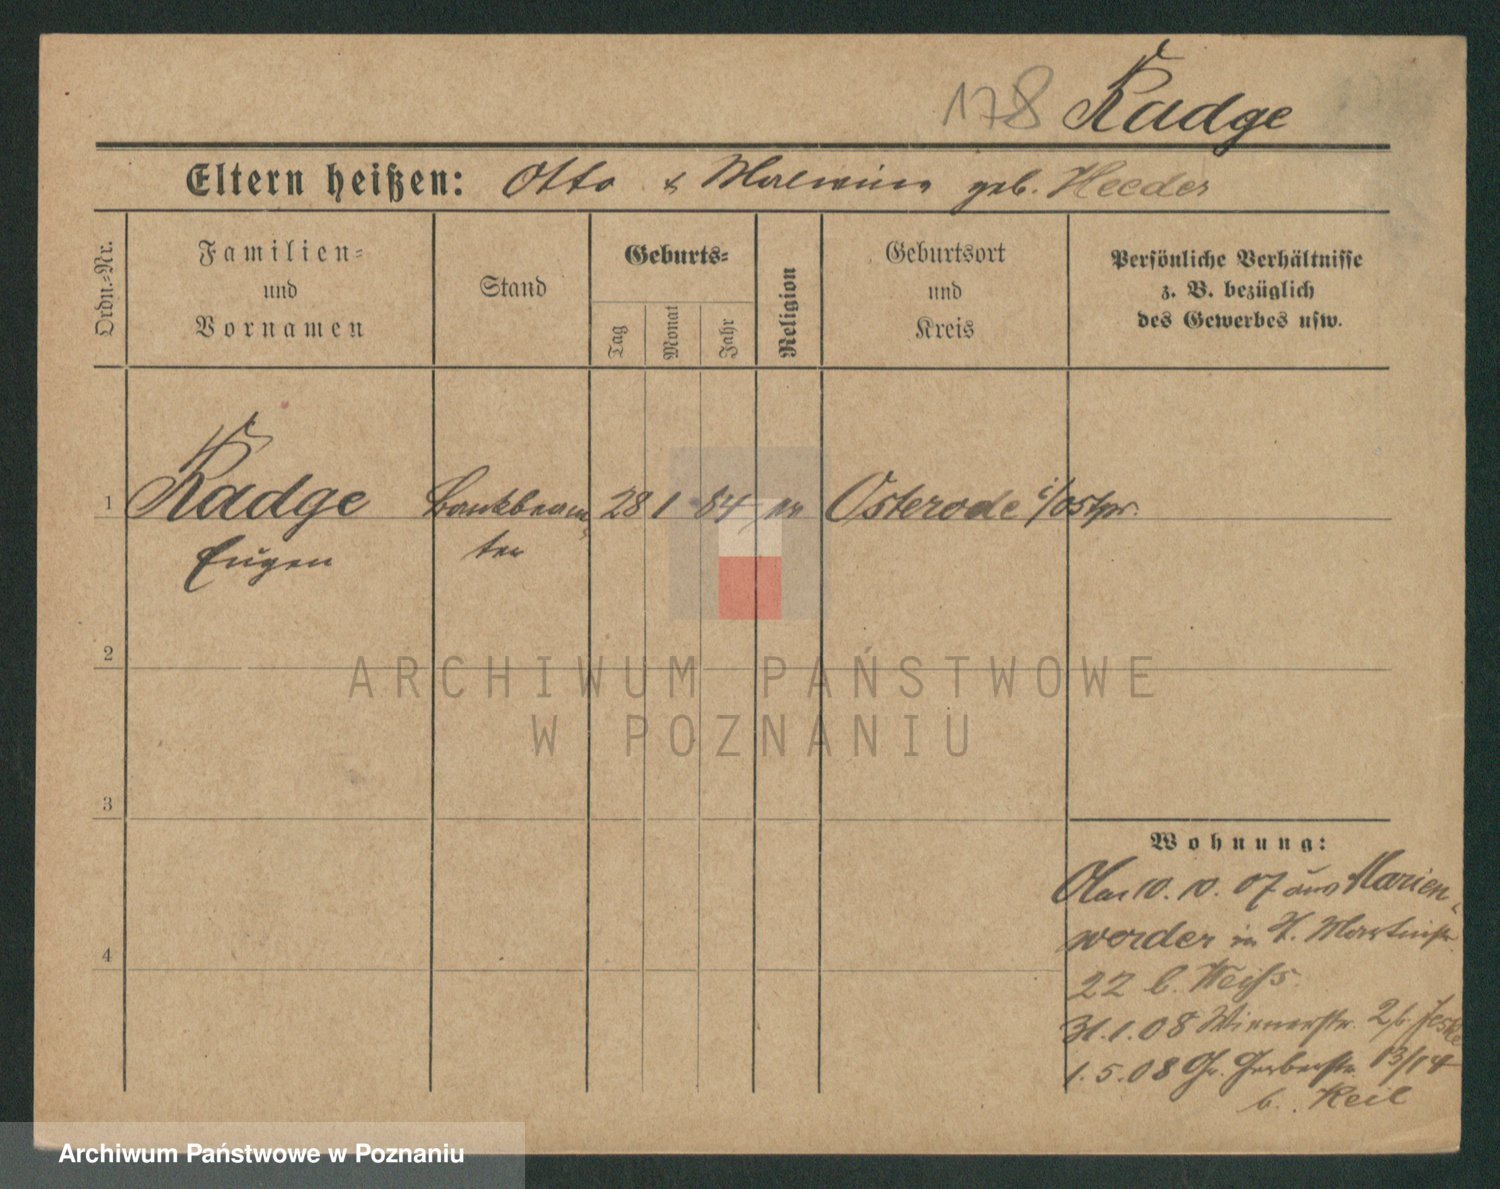 178 Radge
Eltern heißen: Otto & Malwina geb. Heeder
Ordn.=Nr.
Familien=
und
Vornamen
Stand
Geburts=
Tag
Monat
Jahr
Religion
Geburtsort
und
Kreis
Persönliche Verhältnisse
z. B. bezüglich
des Gewerbes usw.
1 Radge Bankbeam 28 1 84 ev Osterode i/Ostpr.
Eugen ter
2
3
4
ARCHIWUM PAŃSTWOWE
W POZNANIU
Wohnung:
10. 10. 07 aus Marien
werder in H. Martinstr
22 b. Weiss.
31.1.08 Wienerstr. 2 b. Jeske
1.5.08 Gr. Gerberstr. 13/14
b. Keil
Archiwum Państwowe w Poznaniu